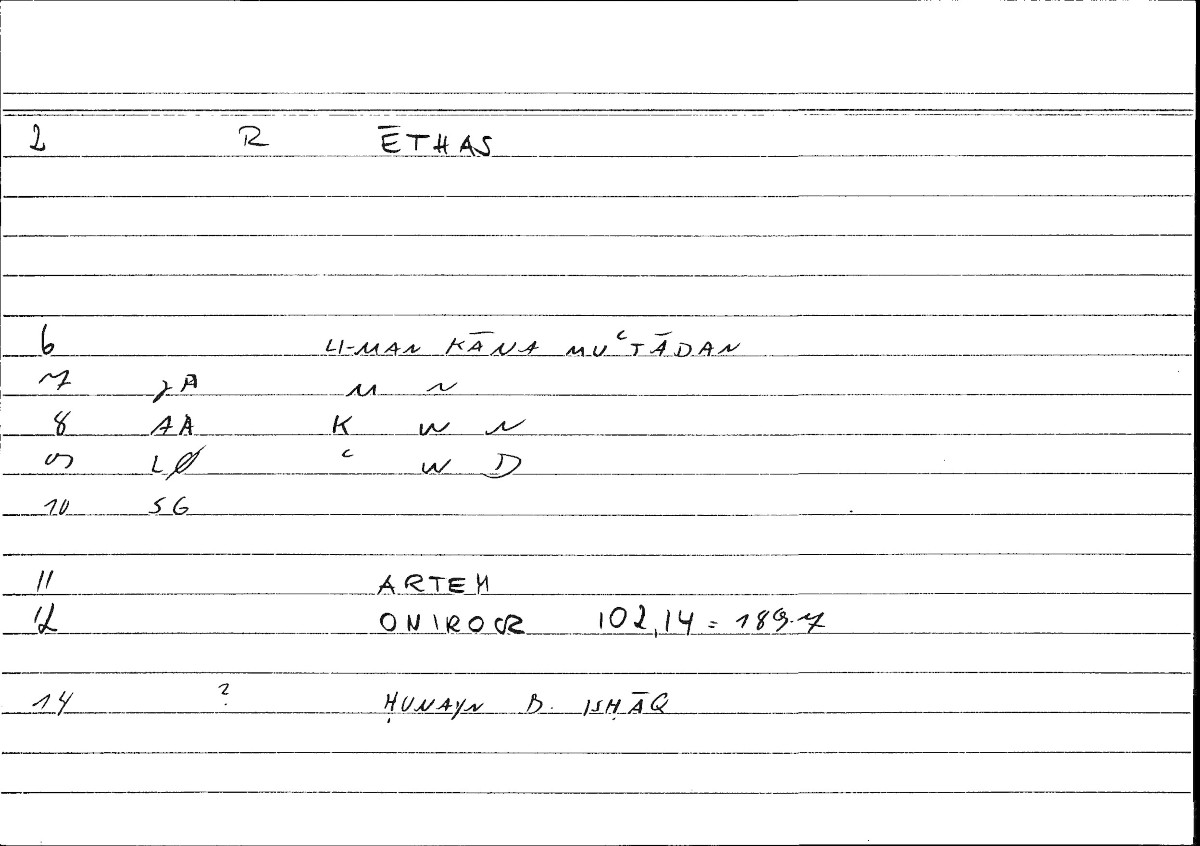 2 R ĒTHAS
6 LI-MAN KĀNA MUʿTĀDAN
7 M N
8 AA K W N
9 LØ ʿ W D
10 SG
11 ARTEM
12 ONIROCR 102,14 = 189.7
14 ? ḤUNAYN B. ISḤĀQ